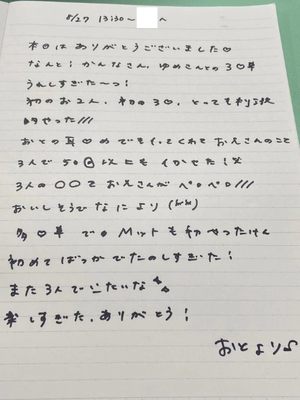 8/27 13:30〜 へ
本日はありがとうございました♡
なんと!かんなさん、ゆめさんとの3○卑
うれしすぎた〜っ!
初のお2人、初の3○、とっても刺激
的やった///
おとの耳♡めでもイってくれておえさんのこと
3人で50回以上もイかせた!
3人の○○でおえさんがペロペロ///
おいしそうでなにより(笑)
多♡卑での Mットも初やったけん
初めてばっかでたのしすぎた!
また3人でいたいな
楽しすぎた、ありがとう!
おとより♪